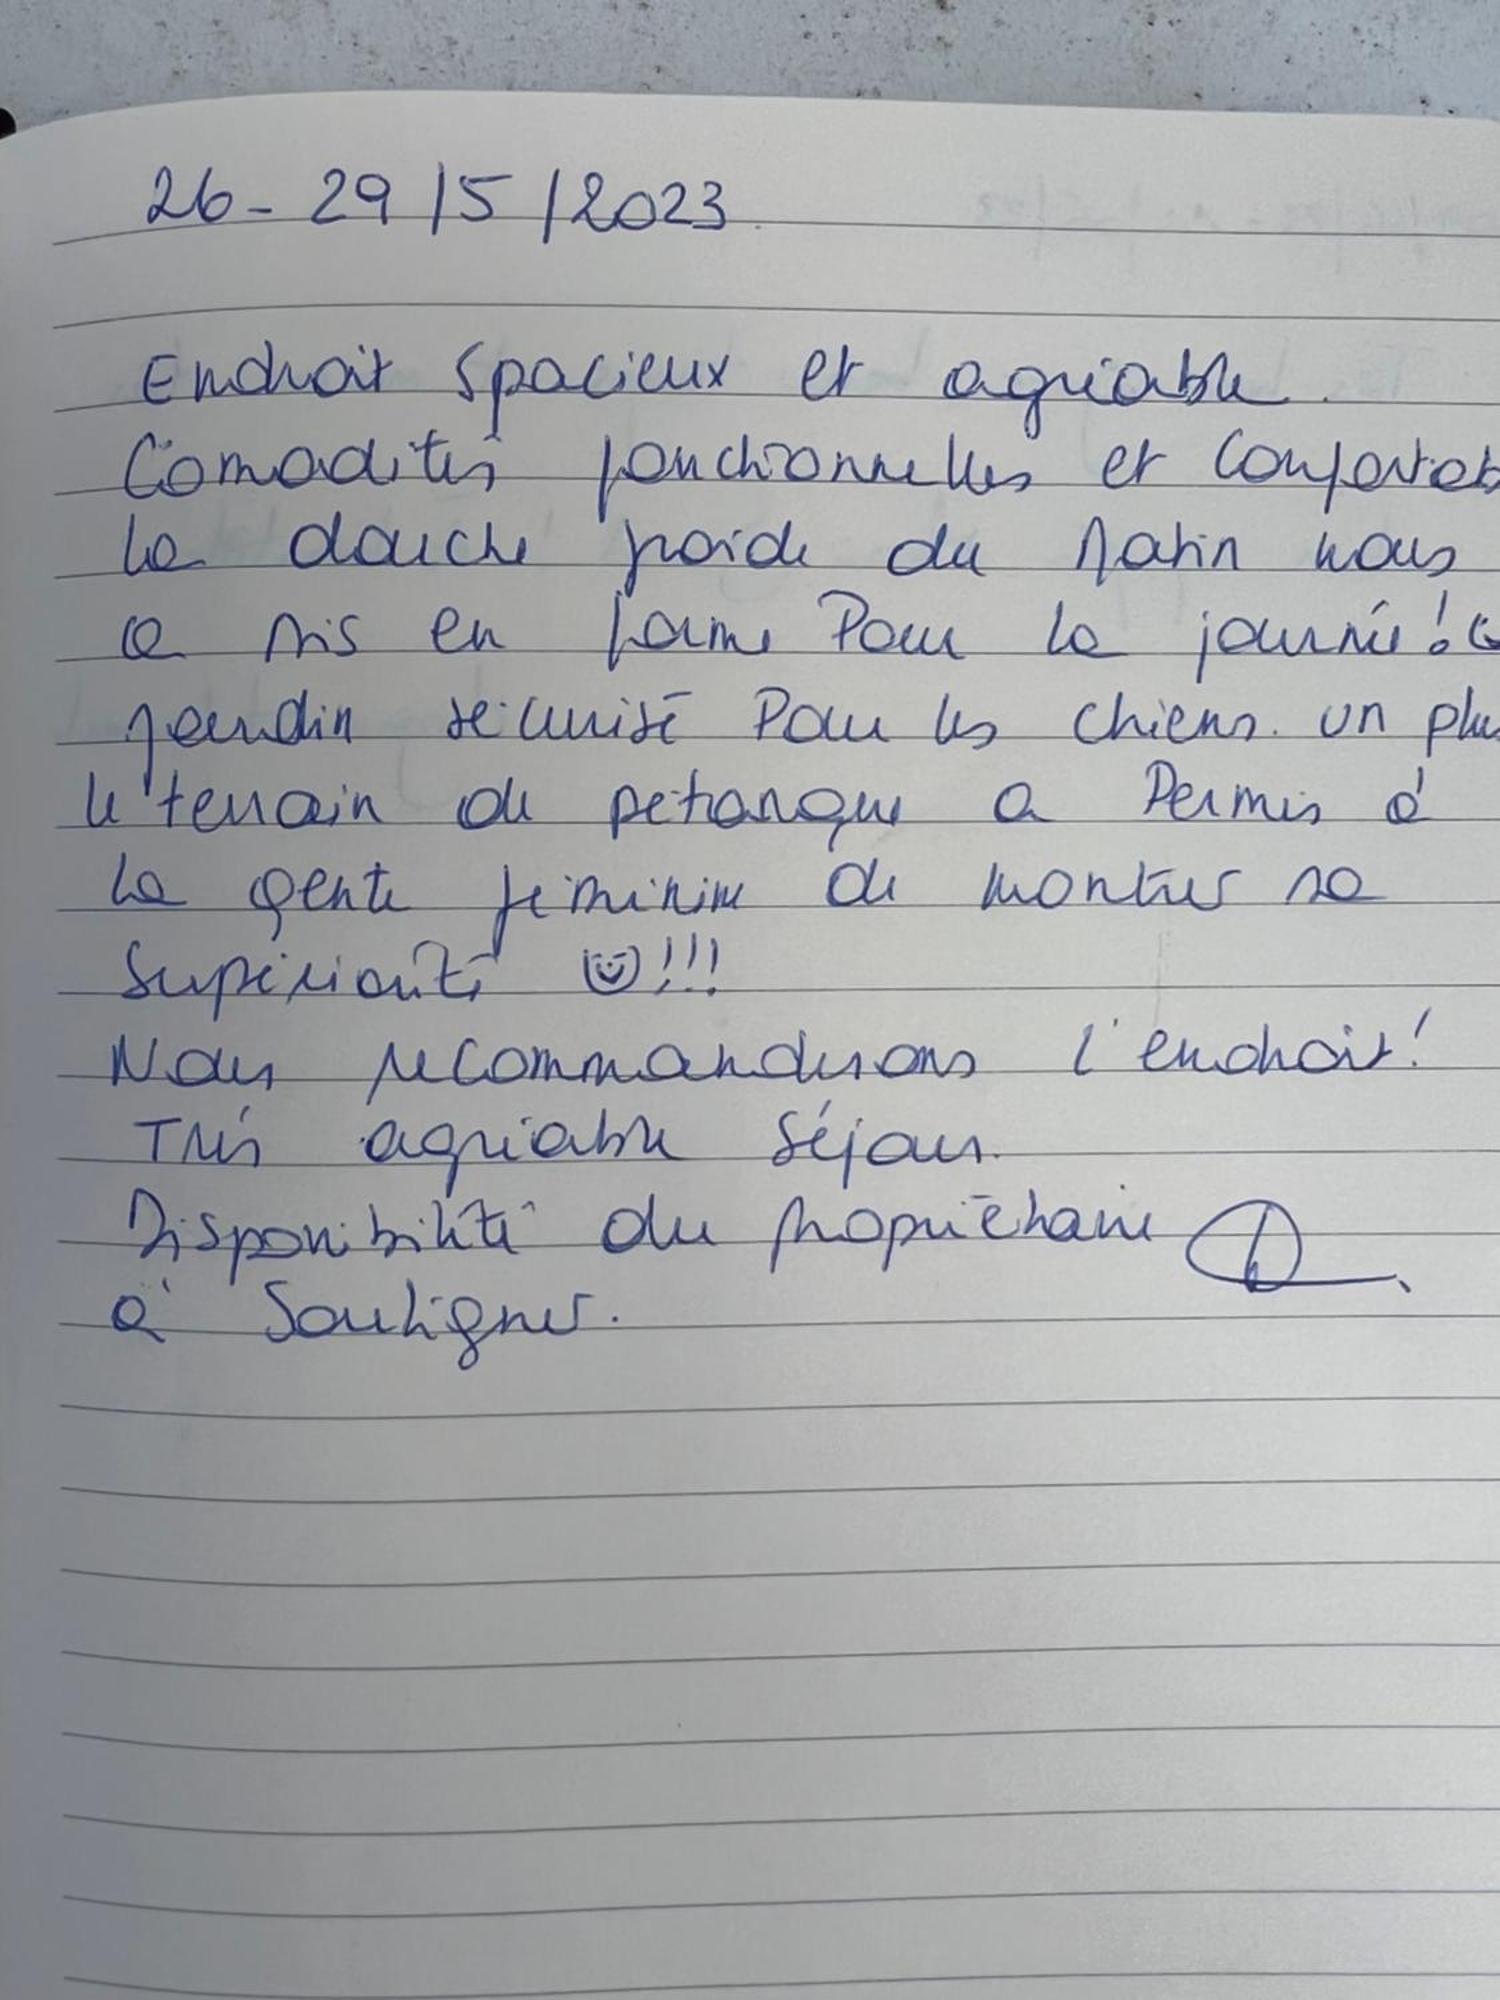 26 - 29 /5 /2023.
Endroit spacieux et agréable.
Comodités fonctionnelles et confortab
La douche froide du matin nous
a mis en forme pour la journée!
jardin sécurisé pour les chiens. un plus
le terrain de pétanque a permis à
la gente féminine de montrer sa
supériorité ☺!!!
Nous recommanderons l'endroit!
Très agréable séjour.
Disponibilité du propriétaire
à souligner.